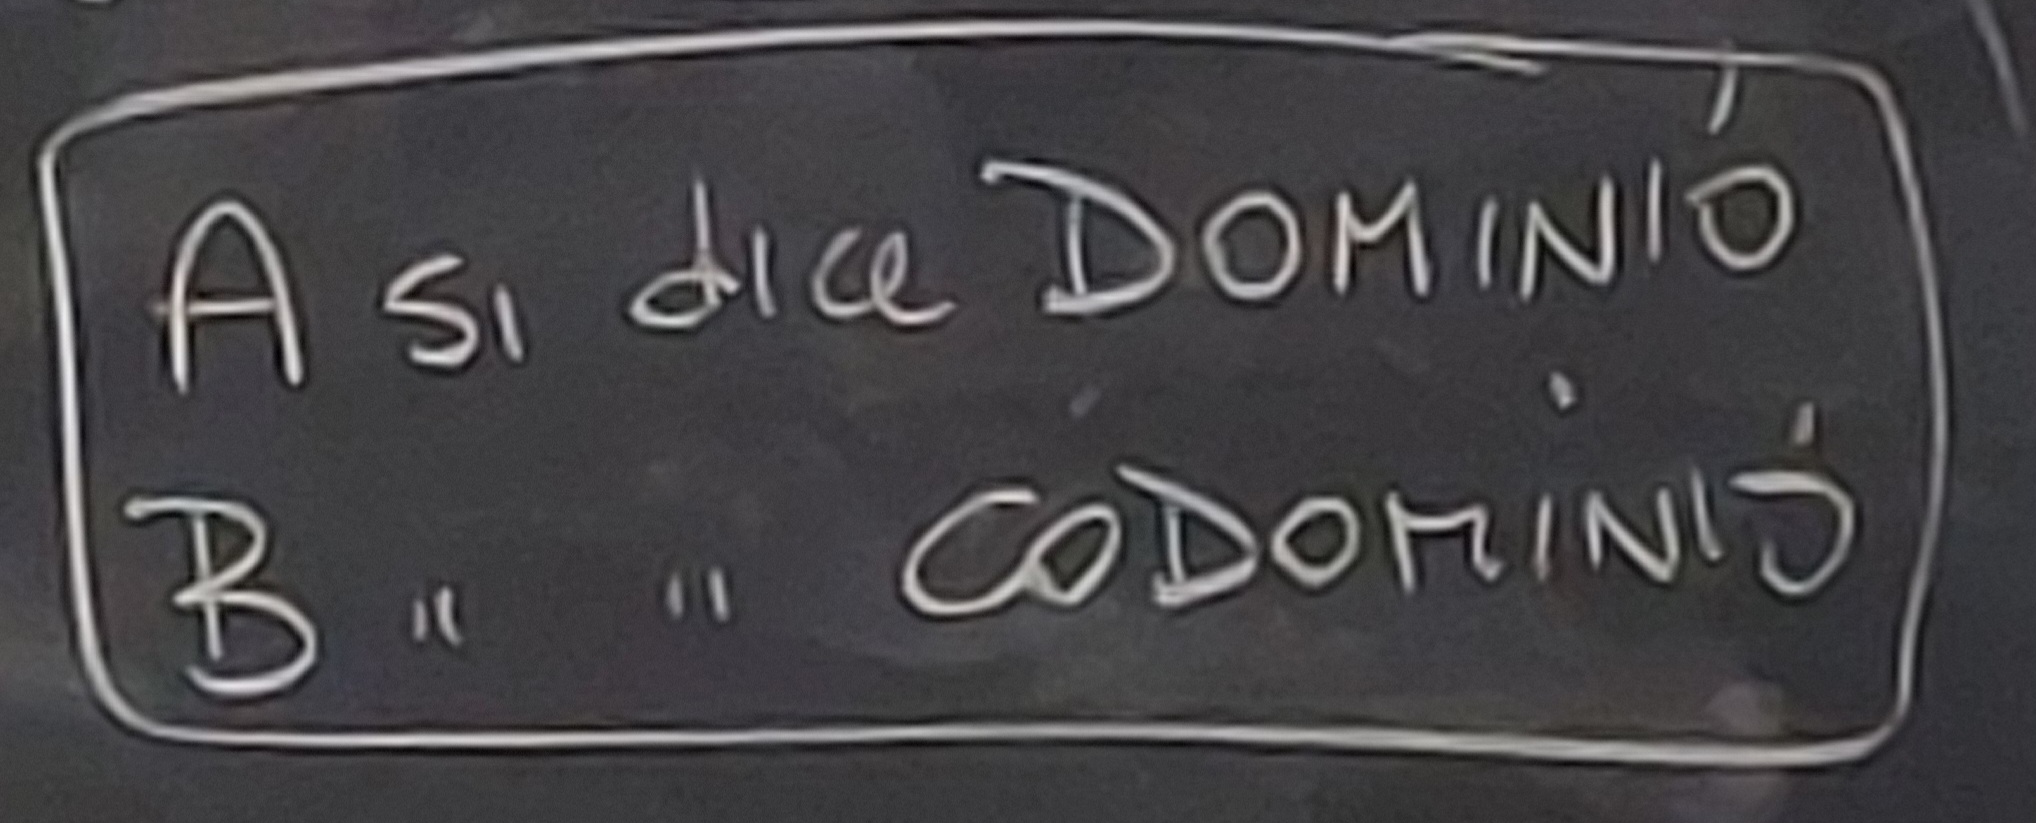 A si dice DOMINIO
B " " CODOMINIO